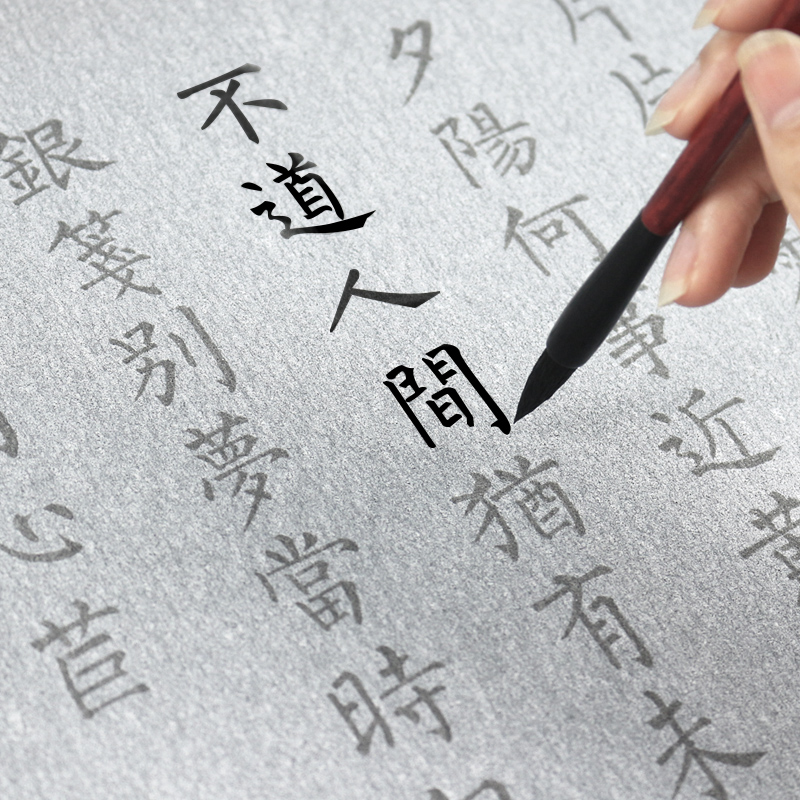 片片
夕陽何事近黃
不道人間猶有未
銀箋别夢當時
心苣